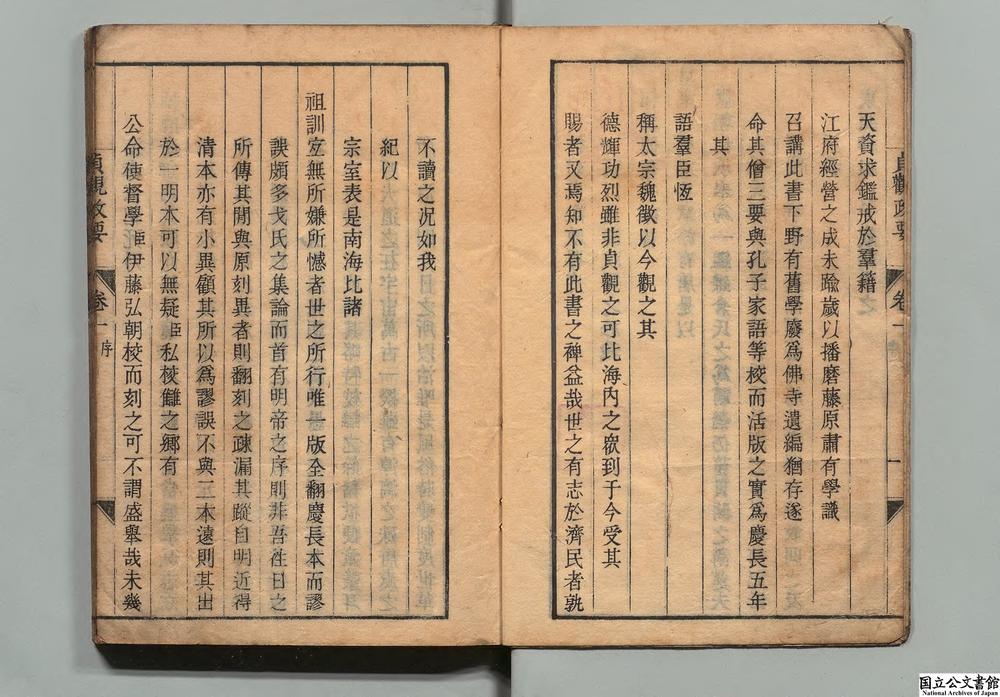 天資求鑑戒於羣籍
江府經營之成未踰歲以播磨藤原肅有學識
召講此書下野有舊學廢爲佛寺遺編猶存遂
命其僧三要與孔子家語等校而活版之實爲慶長五年
其
語羣臣恆
稱太宗魏徵以今觀之其
德輝功烈雖非貞觀之可比海內之欲到于今受其
賜者又焉知不有此書之裨益哉世之有志於濟民者孰
貞觀政要 卷一 一
不讀之况如我
紀以
宗室表是南海比諸
祖訓宜無所嫌所憾者世之所行唯一版全翻慶長本而謬
誤頗多戈氏之集論而首有明帝之序則非吾往日之
所傳其閒與原刻異者則翻刻之疎漏其蹤自明近得
清本亦有小異顧其所以爲謬誤不與二本遠則其出
於一明本可以無疑臣私校讎之鄉有
公命使督學臣伊藤弘朝校而刻之可不謂盛舉哉未幾
貞觀政要 卷一 序
国立公文書館
National Archives of Japan